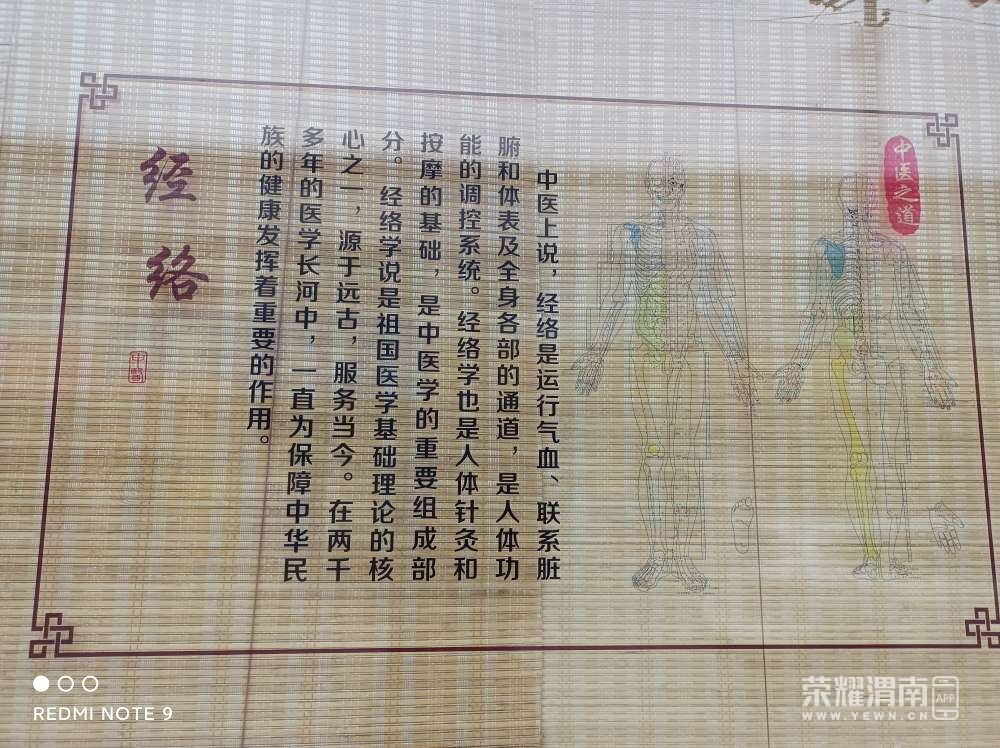 中医之道
中医上说，经络是运行气血、联系脏
腑和体表及全身各部的通道，是人体功
能的调控系统。经络学也是人体针灸和
按摩的基础，是中医学的重要组成部
分。经络学说是祖国医学基础理论的核
心之一，源于远古，服务当今。在两千
多年的医学长河中，一直为保障中华民
族的健康发挥着重要的作用。
经络
中醫
REDMI NOTE 9
荣耀渭南
APP
WWW.YEWN.CN